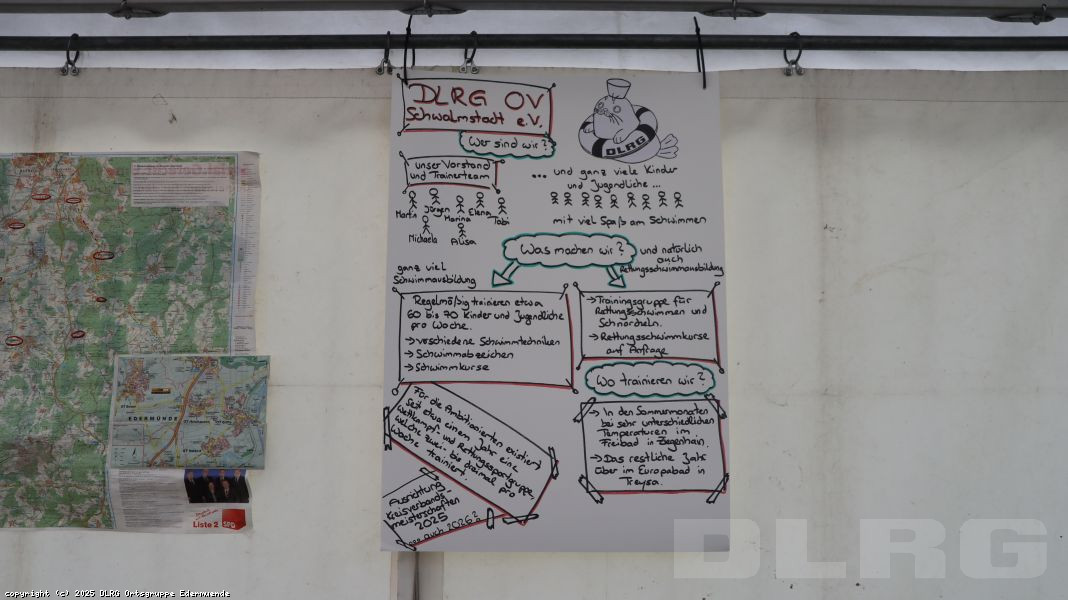 DLRG OV
Schwalmstadt e.V.
DLRG
Wer sind wir?
unser Vorstand
und Trainerteam
... und ganz viele Kinder
und Jugendliche ...
Martin Jürgen Marina Elena Tabi
Michaela Alisa
mit viel Spaß am Schwimmen
Was machen wir?
ganz viel
Schwimmausbildung
und natürlich
auch
Rettungsschwimmausbildung
Regelmäßig trainieren etwa
60 bis 70 Kinder und Jugendliche
pro Woche.
→ verschiedene Schwimmtechniken
→ Schwimmabzeichen
→ Schwimmkurse
→ Trainingsgruppe für
Rettungsschwimmen und
Schnorcheln.
→ Rettungsschwimmkurse
auf Anfrage
Für die Ambitionierten existiert
seit etwa einem Jahr eine
Wettkampf- und Rettungssportgruppe,
welche zwei- bis dreimal pro
Woche trainiert.
Ausrichtung
Kreisverbands-
meisterschaften
2025
... auch 2026?
Wo trainieren wir?
→ In den Sommermonaten
bei sehr unterschiedlichen
Temperaturen im
Freibad in Ziegenhain.
→ Das restliche Jahr
über im Europabad in
Treysa.
EDERMÜNDE
Liste 2
SPD
DLRG
copyright (c) 2025 DLRG Ortsgruppe Edermuende